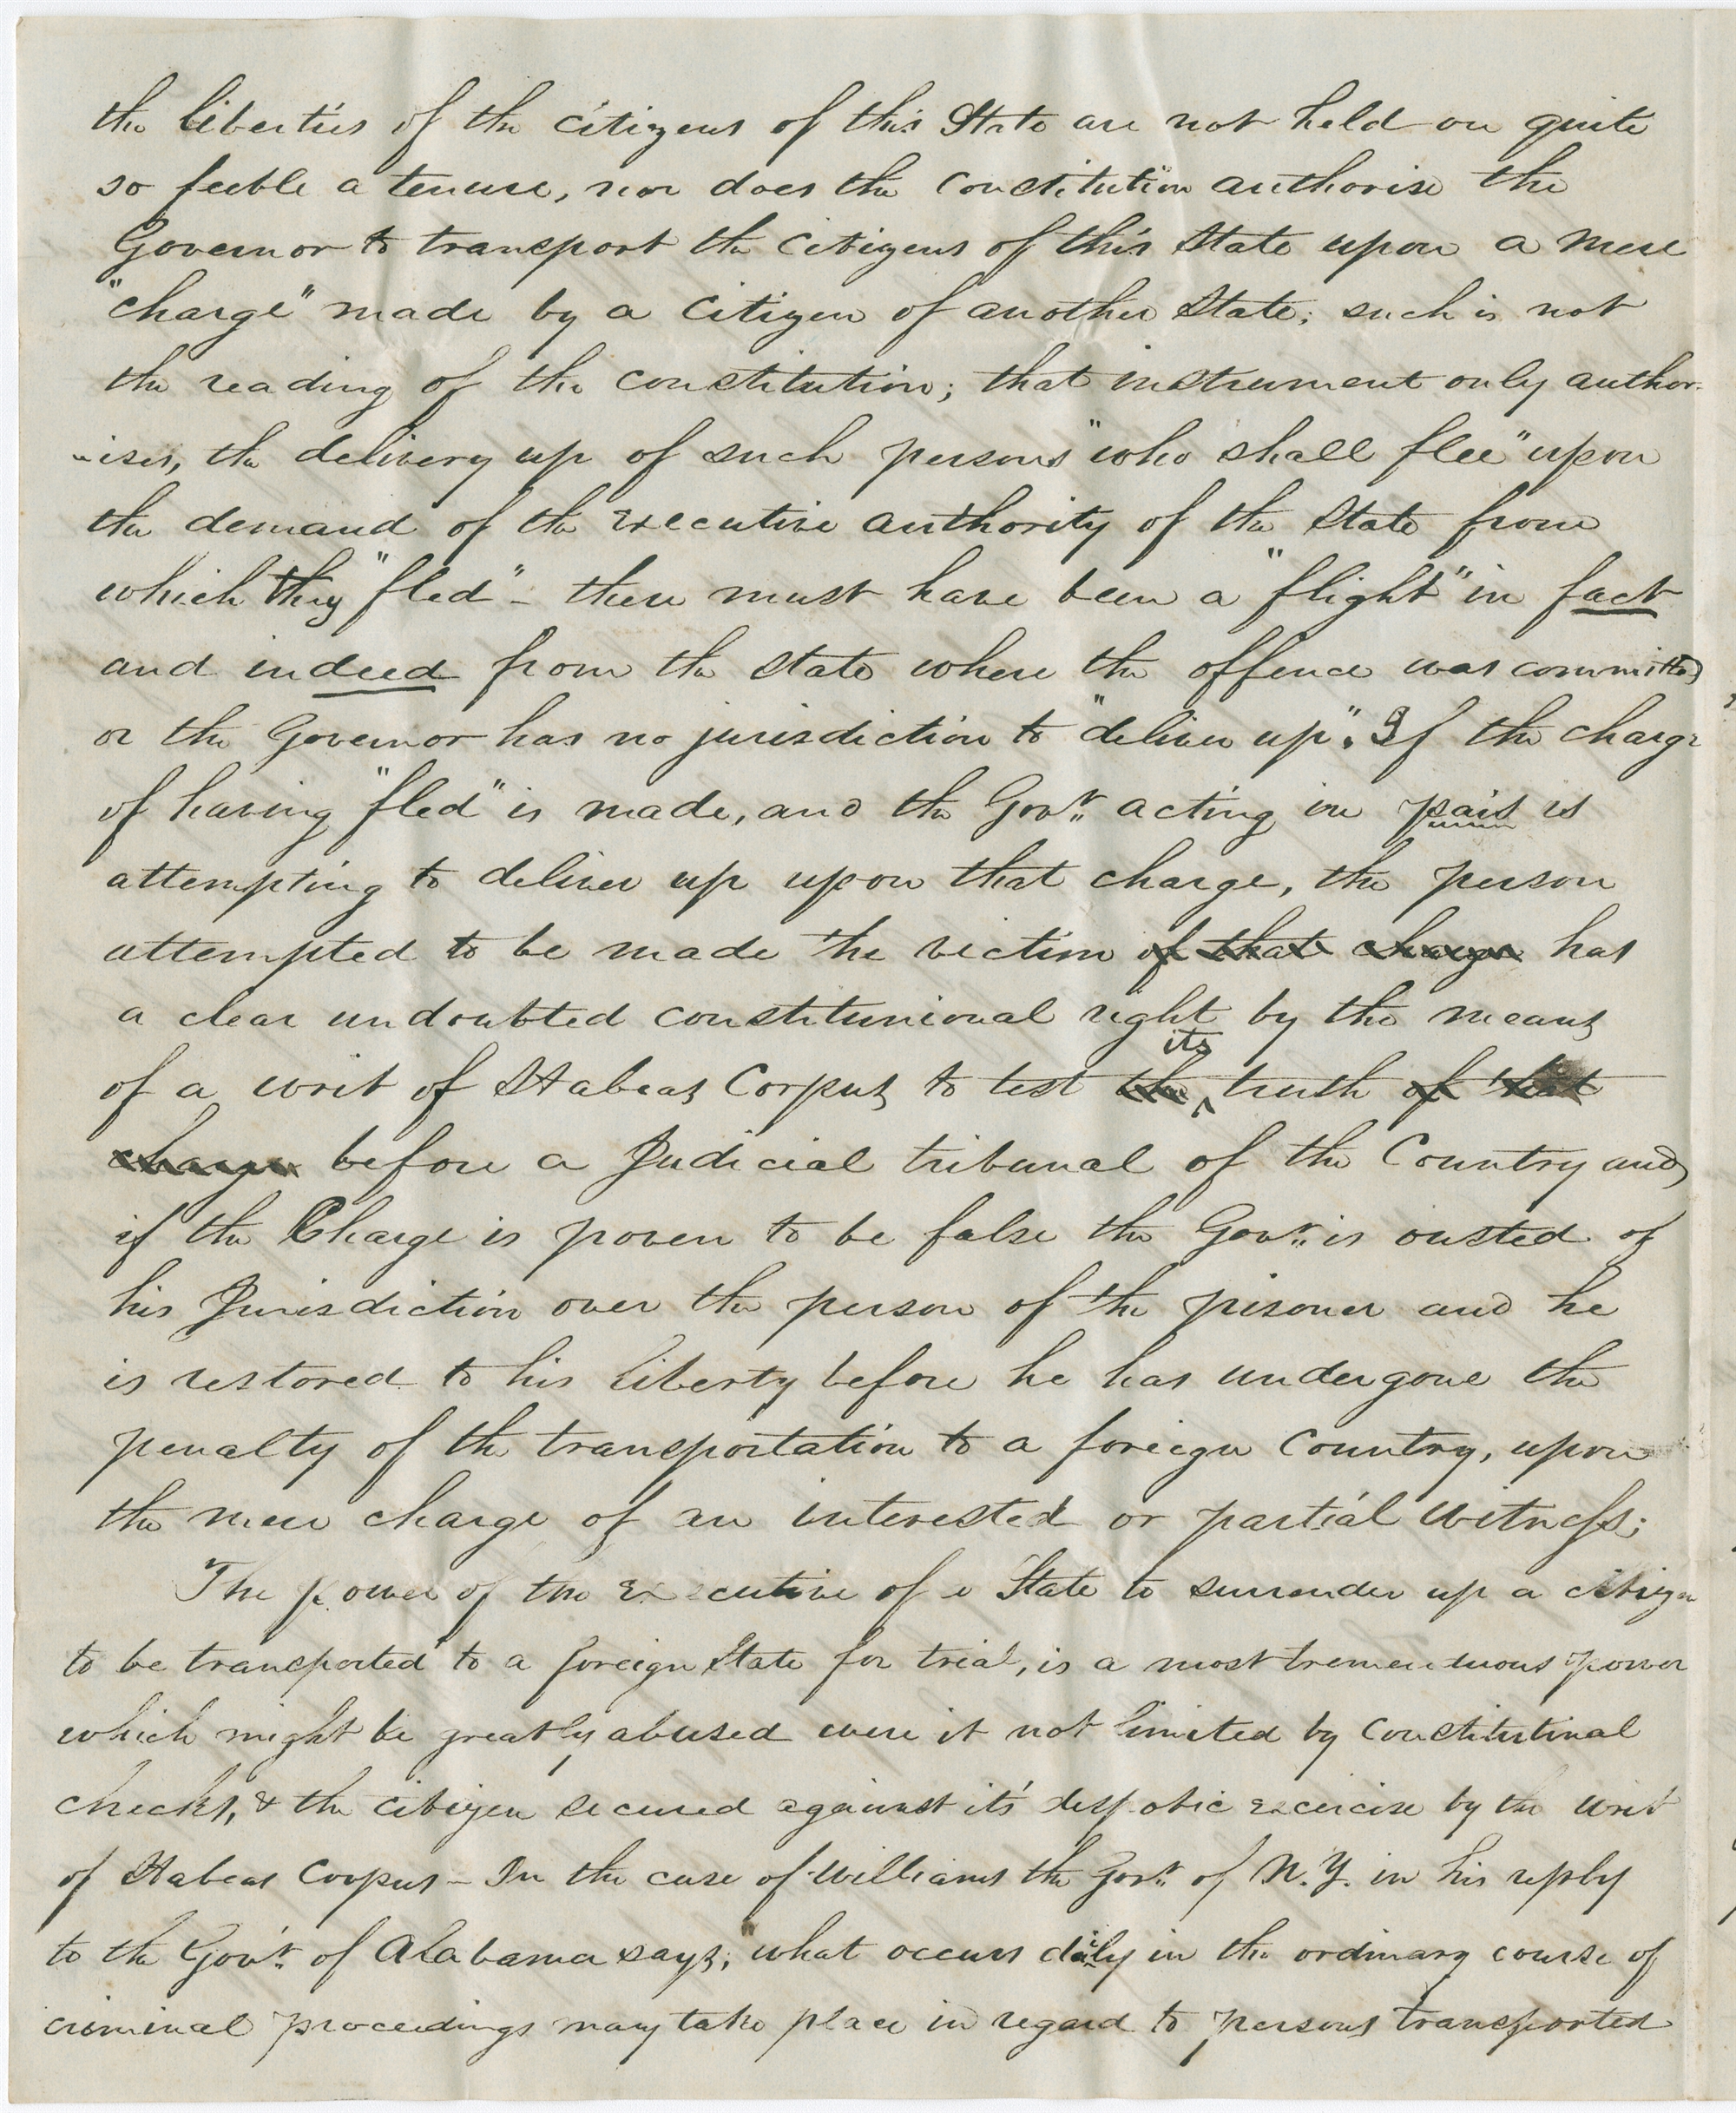 the liberties of the citizens of this State are not held on quite
so feeble a tenure, nor does the constitution authorise the
Governor to transport the citizens of this State upon a mere
"charge" made by a citizen of another State; such is not
the reading of the constitution; that instrument only author-
-ises, the delivery up of such persons "who shall flee" upon
the demand of the executive authority of the State from
which they "fled" - there must have been a "flight" in fact
and indeed from the state where the offence was committed
or the Governor has no jurisdiction to "deliver up". If the charge
of having "fled" is made, and the Govr. acting in pais is
attempting to deliver up upon that charge, the person
attempted to be made the victim of that charge has
a clear undoubted constitunional right by the means
of a writ of Habeas Corpus to test the its truth of that
charge before a Judicial tribunal of the Country and
if the Charge is proven to be false the Govr. is ousted of
his Jurisdiction over the person of the prisoner and he
is restored to his liberty before he has undergone the
penalty of the transportation to a foreign country, upon
the mere charge of an interested or partial witness;
The power of the Executive of a State to surrender up a citizen
to be transported to a foreign State for trial, is a most tremenduous power
which might be greatly abused were it not limited by constitutinal
checks, & the citizen secured against it's despotic excercise by the writ
of Habeas Corpus - In the case of Williams the Govr. of N.Y. in his reply
to the Govr. of Alabama says; "what occurs daily in the ordinary course of
criminal proceedings may take place in regard to persons transported